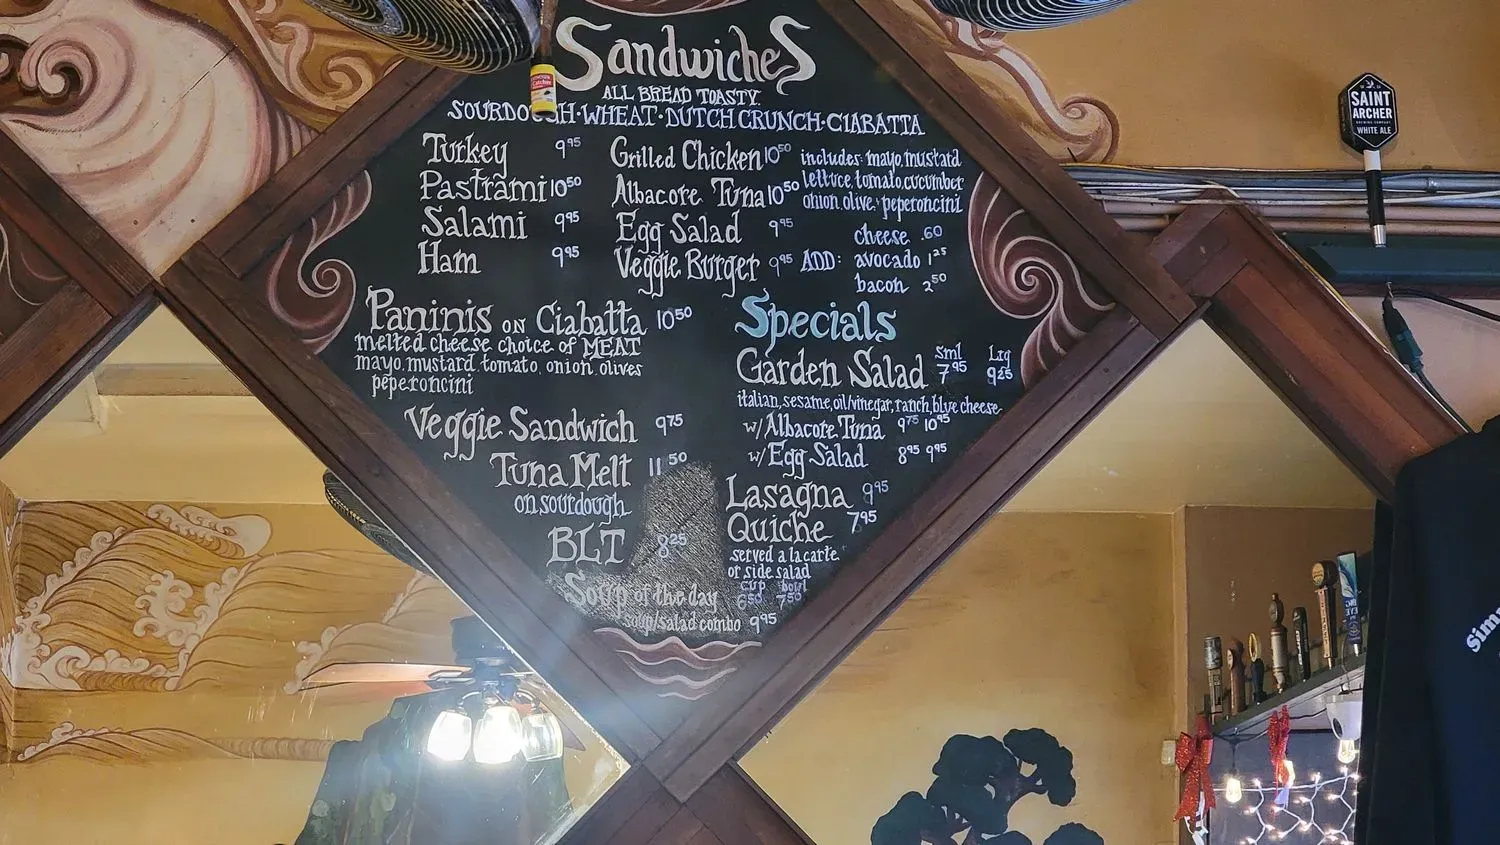 Sandwiches
ALL BREAD TOASTY.
SOURDOUGH·WHEAT·DUTCH CRUNCH·CIABATTA
Turkey 9.95
Pastrami 10.50
Salami 9.95
Ham 9.95
Grilled Chicken 10.50
Albacore Tuna 10.50
Egg Salad 9.95
Veggie Burger 9.95
includes: mayo, mustard
lettuce, tomato, cucumber
onion, olive, peperoncini
cheese .60
ADD: avocado 1.25
bacon 2.50
Paninis on Ciabatta 10.50
melted cheese choice of MEAT
mayo, mustard, tomato, onion, olives
peperoncini
Veggie Sandwich 9.75
Tuna Melt 11.50
on sourdough
BLT 8.25
Soup of the day cup 6.50 bowl 7.50
soup/salad combo 9.95
Specials
Garden Salad sml 7.95 Lrg 9.25
italian, sesame, oil/vinegar, ranch, blue cheese
w/Albacore Tuna 9.75 10.95
w/Egg Salad 8.95 9.95
Lasagna 9.95
Quiche 7.95
served a la carte
or side salad
SAINT
ARCHER
BREWING COMPANY
WHITE ALE